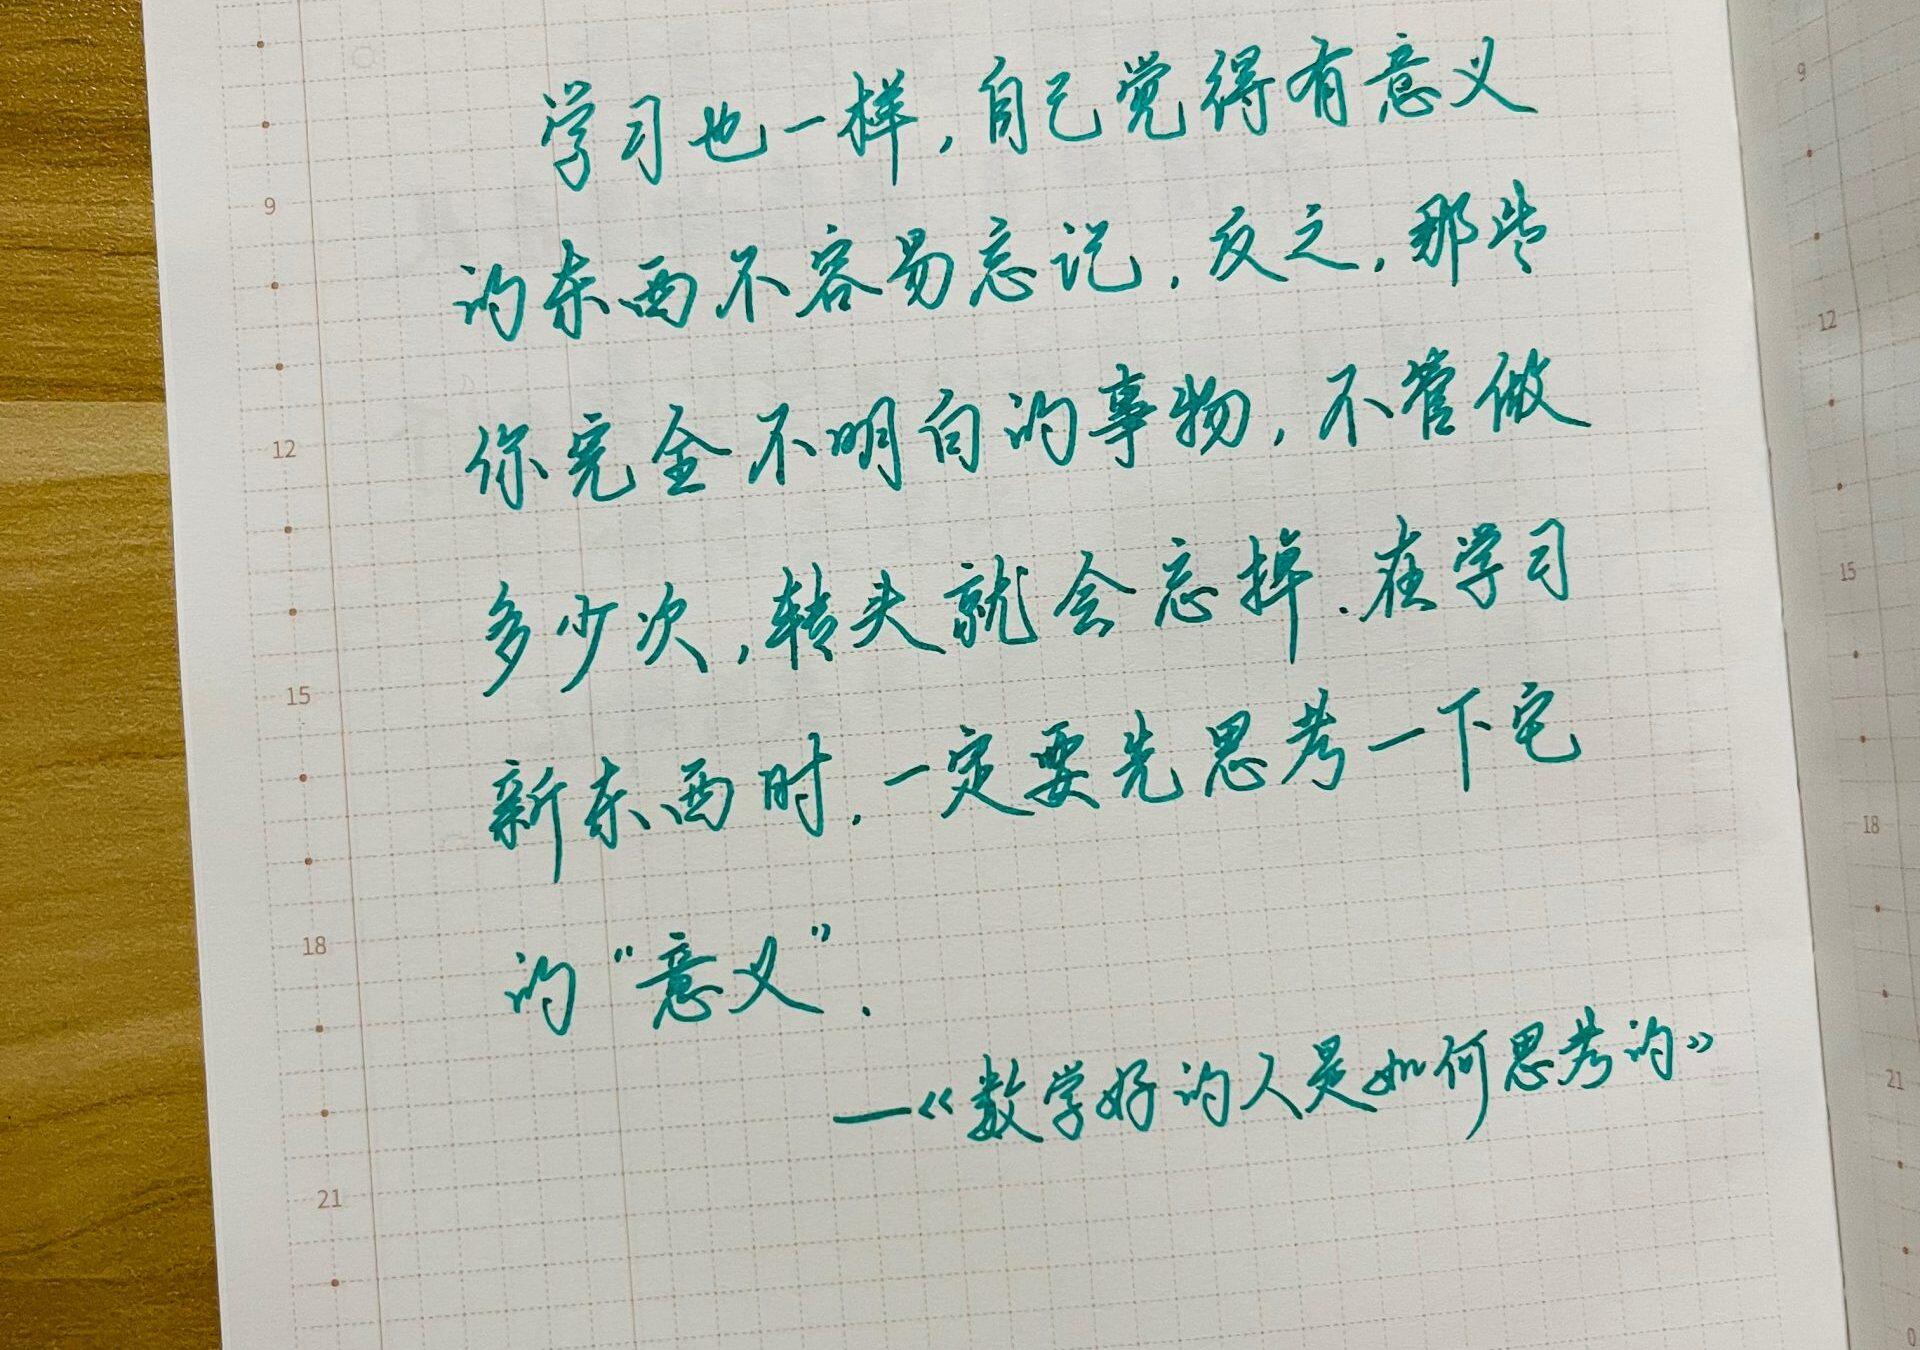 学习也一样,自己觉得有意义
的东西不容易忘记,反之,那些
你完全不明白的事物,不管做
多少次,转头就会忘掉.在学习
新东西时,一定要先思考一下它
的“意义”.
—《数学好的人是如何思考的》
9
12
15
18
21
9
12
15
18
21
0